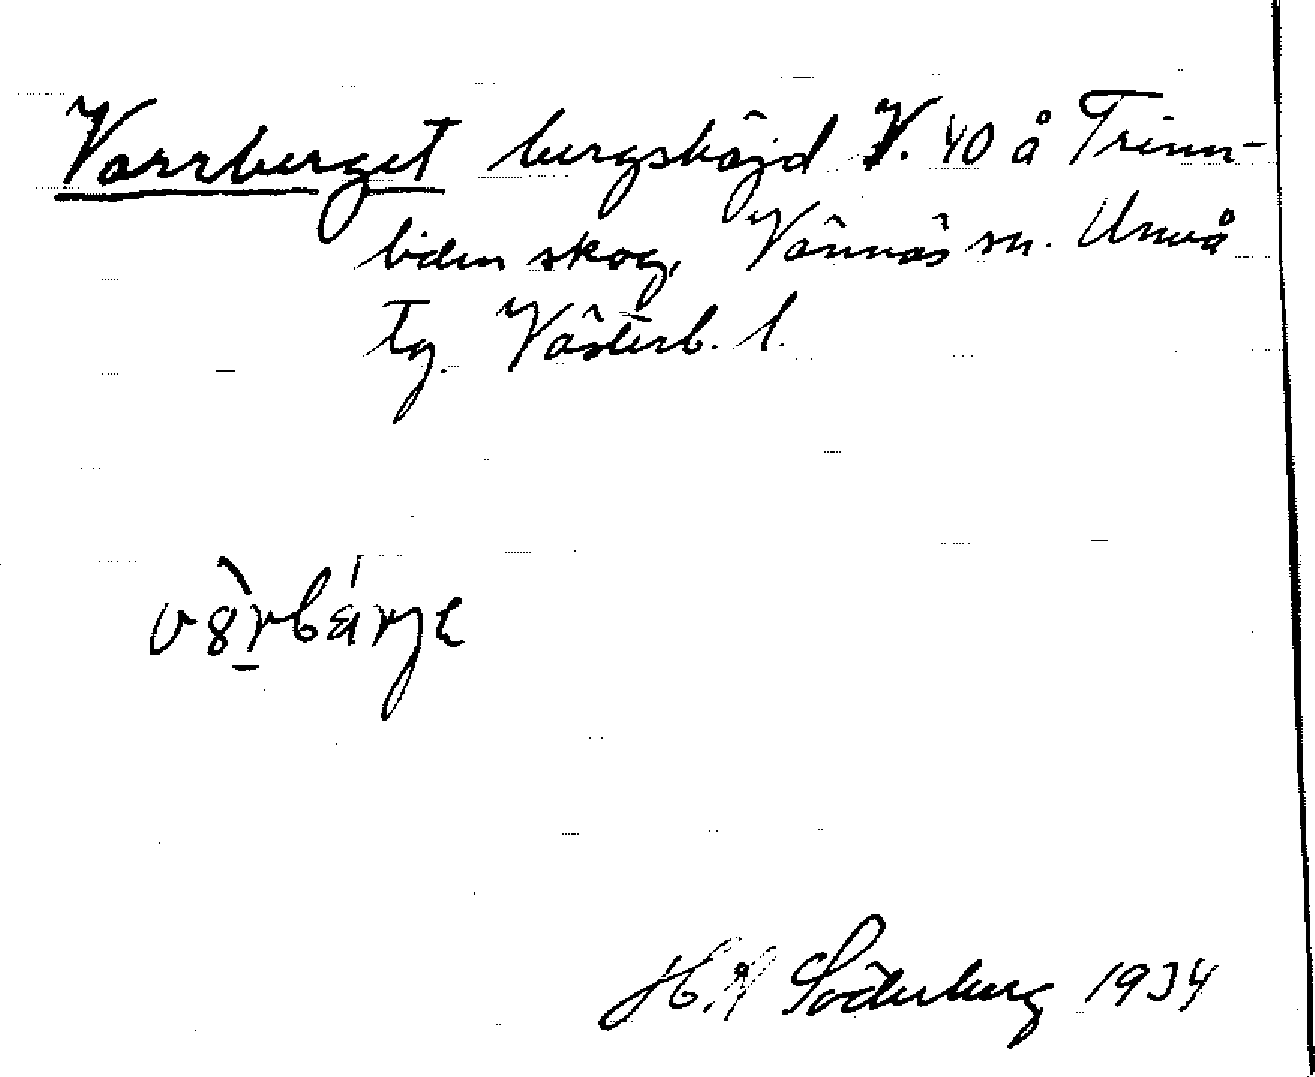 Varrberget bergshöjd V. 40 å Trinn-
liden skog, Vännäs sn. Umeå
tg. Västerb. l.
H. Söderberg 1934